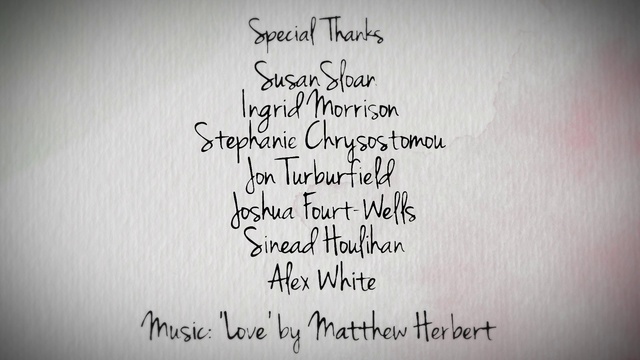 Special Thanks
Susan Sloan
Ingrid Morrison
Stephanie Chrysostomou
Jon Turburfield
Joshua Fourt-Wells
Sinead Houlihan
Alex White
Music: 'Love' by Matthew Herbert